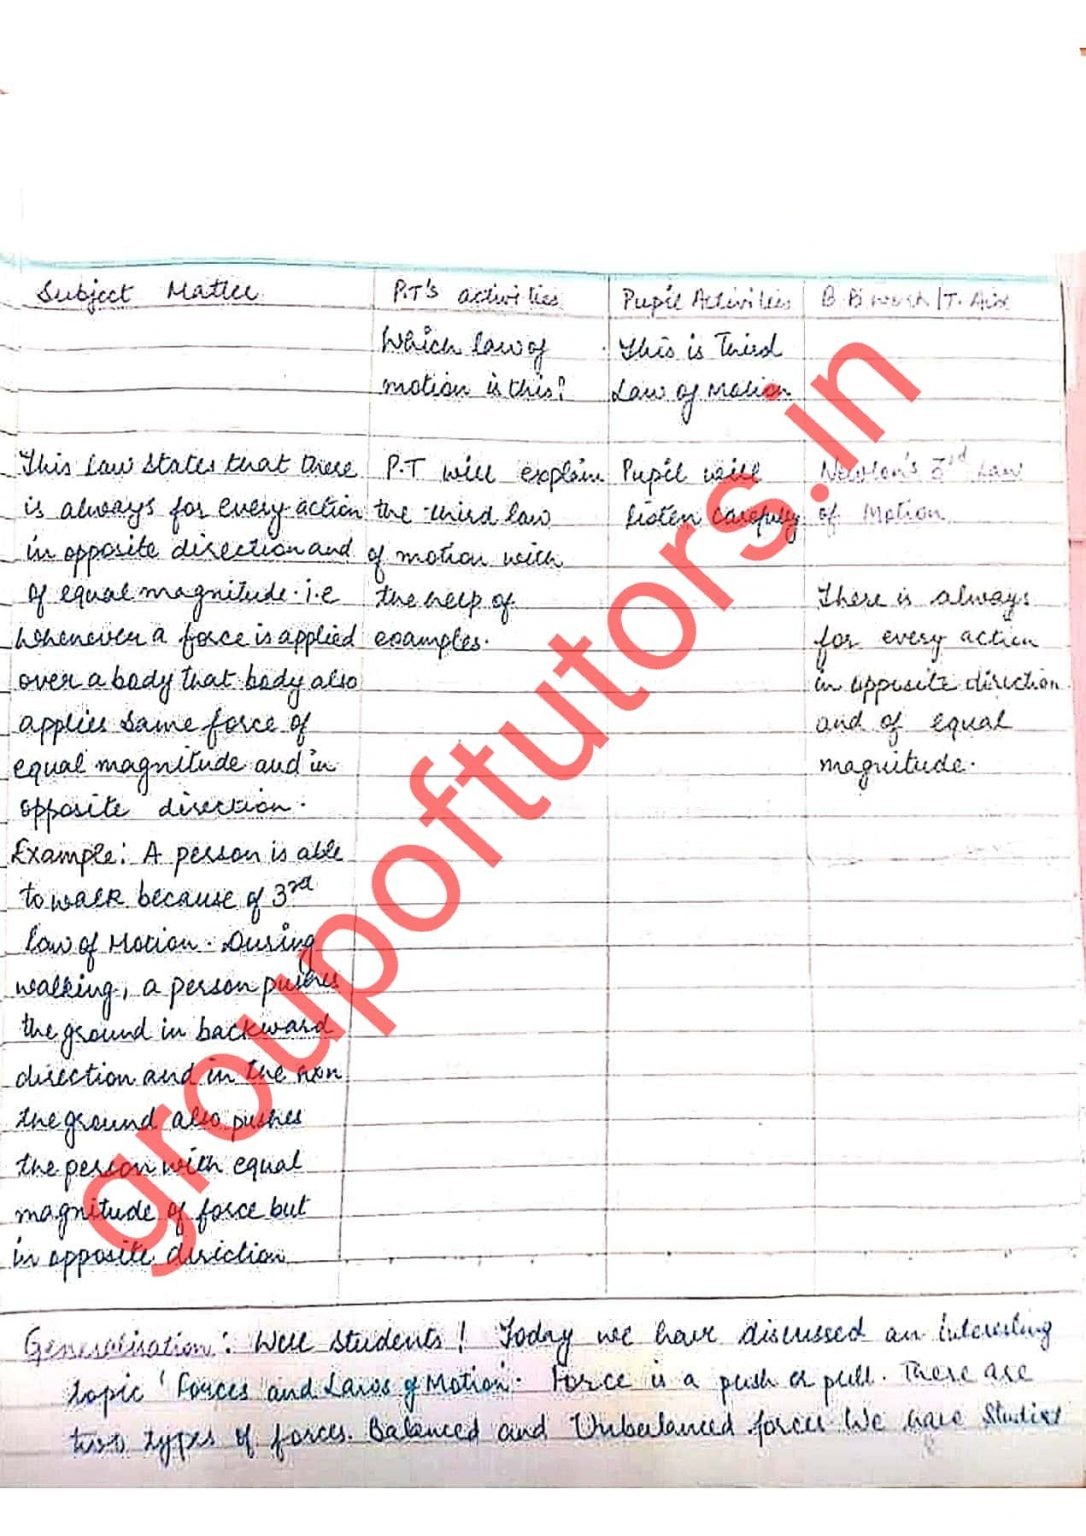 Subject Matter
P.T's activities
Pupil Activities
B.B work/T. Aid
Which law of
motion is this?
This is Third
Law of Motion
This law states that there
is always for every action
in opposite direction and
of equal magnitude. i.e
whenever a force is applied
over a body that body also
applies same force of
equal magnitude and in
opposite direction.
Example: A person is able
to walk because of 3rd
law of Motion. During
walking, a person pushes
the ground in backward
direction and in the
the ground also pushes
the person with equal
magnitude of force but
in opposite diriction
P.T will explain
the third law
of motion with
the help of
examples.
Pupil will
listen carefully
Newton's 3rd Law
of Motion
There is always
for every action
in opposite direction
and of equal
magnitude.
Generalisation: Well students! Today we have discussed an interesting
topic 'Forces and Laws of Motion. Force is a push or pull. There are
two types of forces. Balanced and Unbalanced forces We have
groupoftutors.in